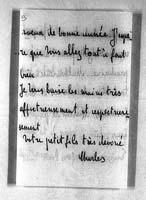 vœux de bonne année. J'espè
re que vous allez tout à fait
bien
Je vous baise les mains très
affectueusement et respectueu
sement
votre petit fils très dévoué
Charles